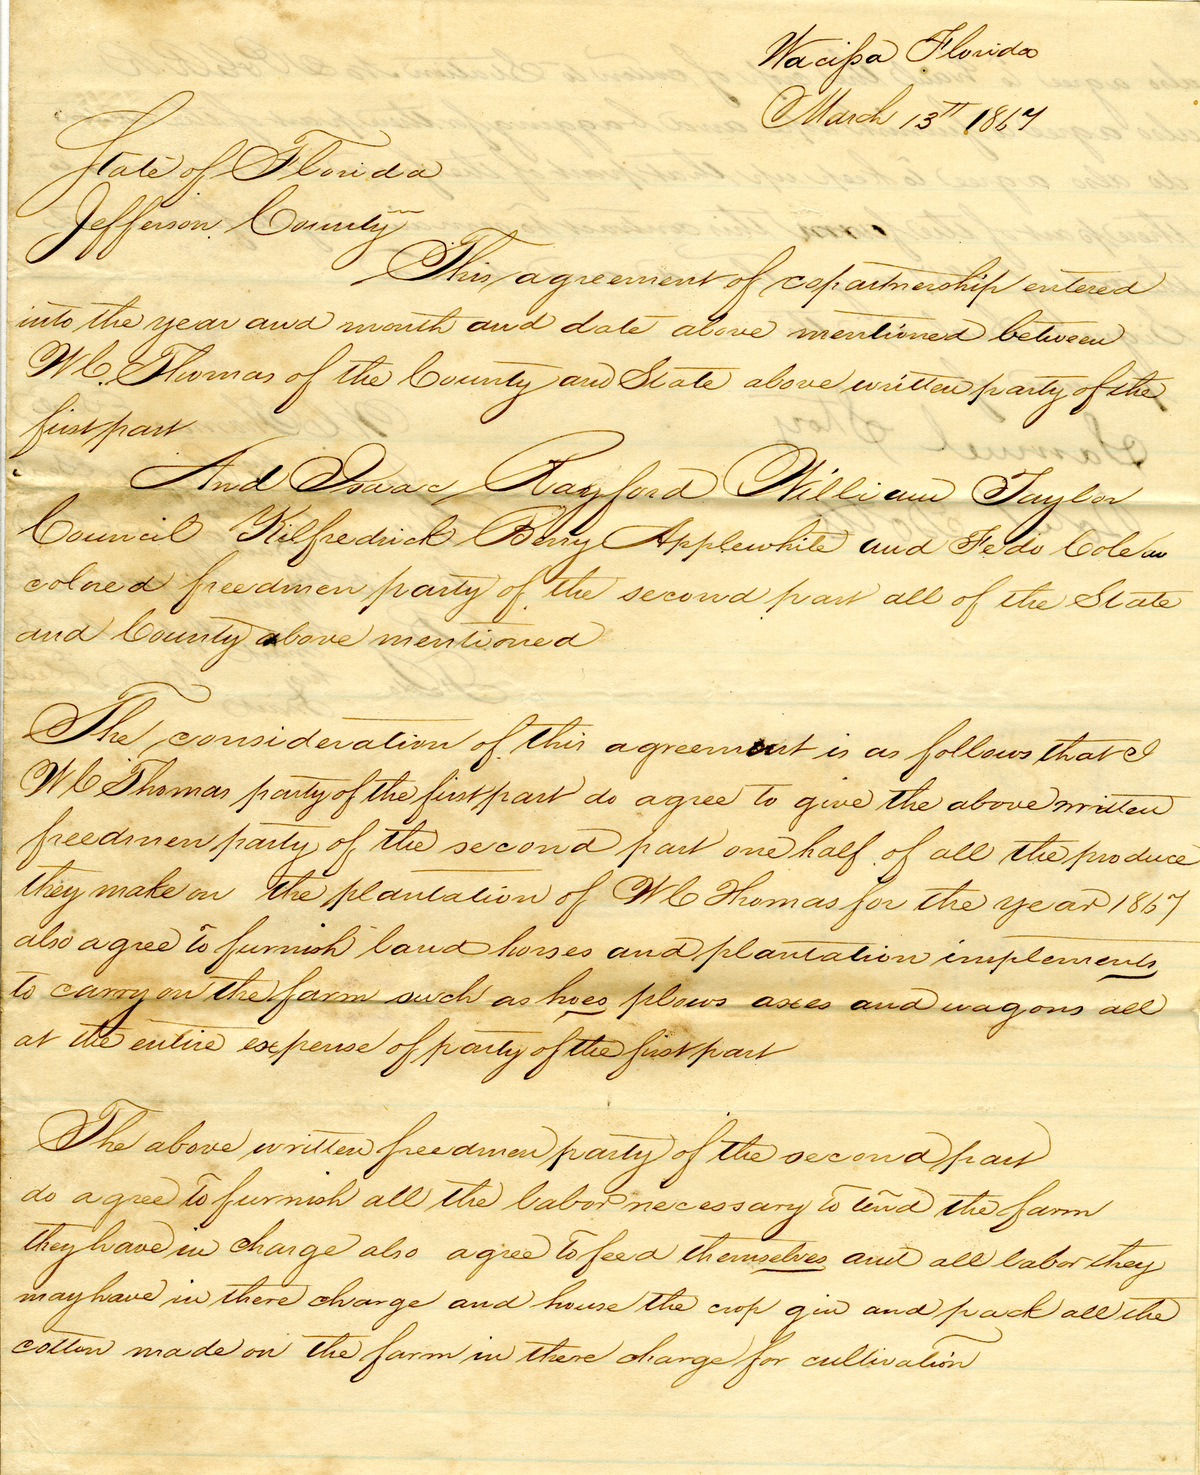 Wacissa Florida
March 13th 1867
State of Florida
Jefferson County
This agreement of copartnership entered
into the year and month and date above mentioned between
W C. Thomas of the County and State above written party of the
first part
And Isaac Rayford William Taylor
Council Kilfredrick Berry Applewhite and Fedo Cole
colored freedmen party of the second part all of the State
and County above mentioned
The consideration of this agreement is as follows that I
W C Thomas party of the first part do agree to give the above written
freedmen party of the second part one half of all the produce
they make on the plantation of W C Thomas for the year 1867
also agree to furnish land horses and plantation implements
to carry on the farm such as hoes plows axes and wagons all
at the entire expense of party of the first part
The above written freedmen party of the second part
do agree to furnish all the labor necessary to tend the farm
they have in charge also agree to feed themselves and all labor they
may have in there charge and house the crop gin and pack all the
cotton made on the farm in there charge for cultivation